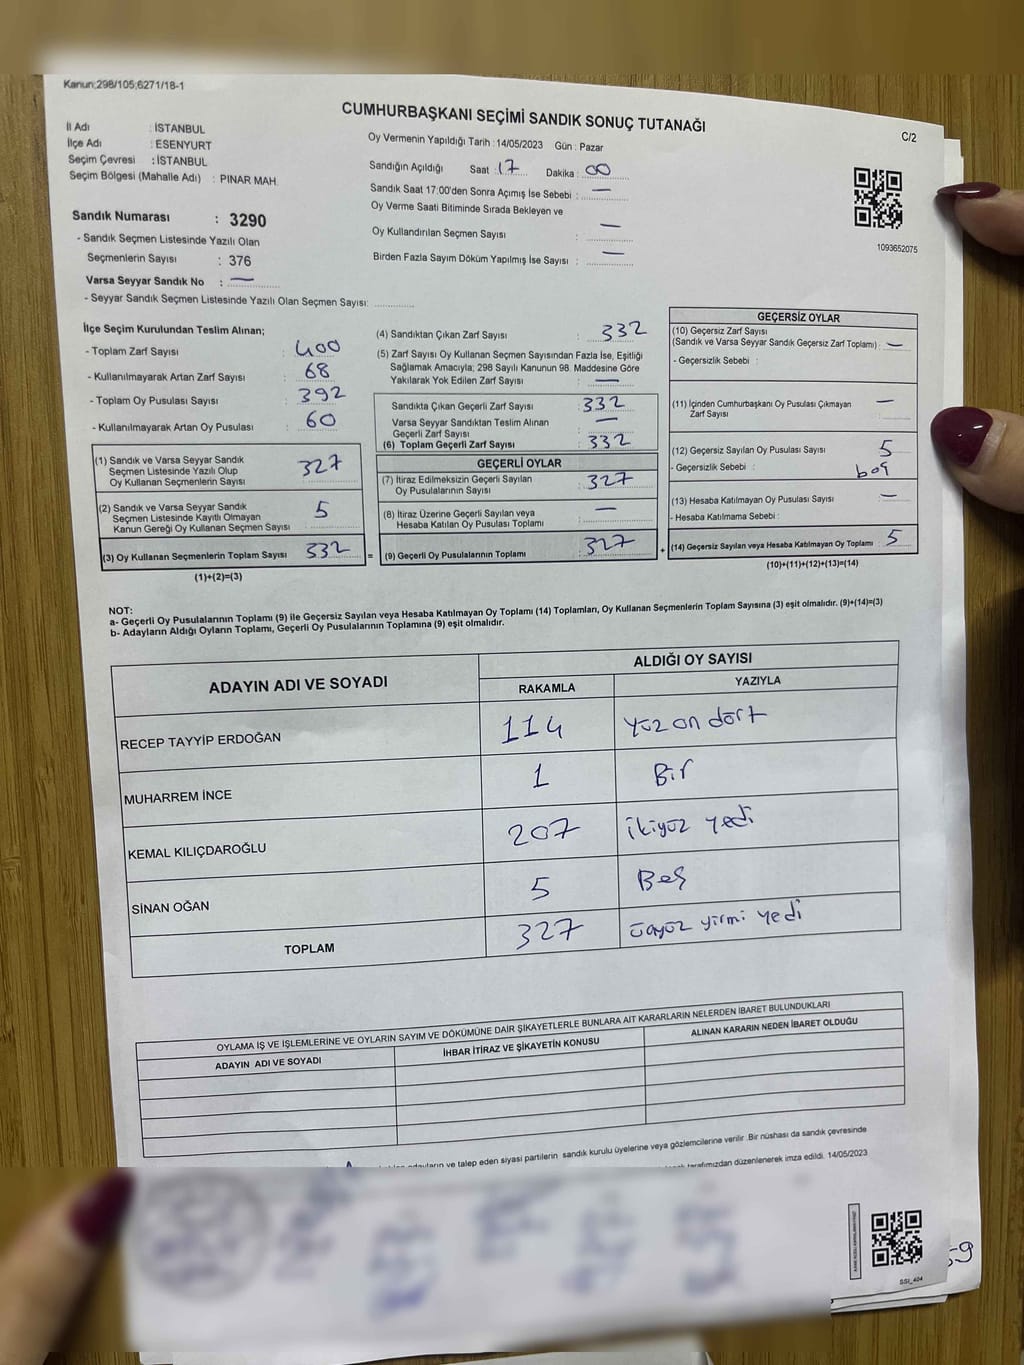 Kanun;298/105;6271/18-1
CUMHURBAŞKANI SEÇİMİ SANDIK SONUÇ TUTANAĞI
C/2
İl Adı : İSTANBUL
İlçe Adı : ESENYURT
Seçim Çevresi : İSTANBUL
Seçim Bölgesi (Mahalle Adı) : PINAR MAH.
Oy Vermenin Yapıldığı Tarih :14/05/2023 Gün : Pazar
Sandığın Açıldığı Saat : 17 Dakika : 00
Sandık Saat 17:00'den Sonra Açımış İse Sebebi : —
Oy Verme Saati Bitiminde Sırada Bekleyen ve
Oy Kullandırılan Seçmen Sayısı : —
Birden Fazla Sayım Döküm Yapılmış İse Sayısı : —
1093652075
Sandık Numarası : 3290
- Sandık Seçmen Listesinde Yazılı Olan
Seçmenlerin Sayısı : 376
Varsa Seyyar Sandık No : —
- Seyyar Sandık Seçmen Listesinde Yazılı Olan Seçmen Sayısı:
İlçe Seçim Kurulundan Teslim Alınan;
- Toplam Zarf Sayısı : 400
- Kullanılmayarak Artan Zarf Sayısı : 68
- Toplam Oy Pusulası Sayısı : 392
- Kullanılmayarak Artan Oy Pusulası : 60
(1) Sandık ve Varsa Seyyar Sandık
Seçmen Listesinde Yazılı Olup
Oy Kullanan Seçmenlerin Sayısı : 327
(2) Sandık ve Varsa Seyyar Sandık
Seçmen Listesinde Kayıtlı Olmayan
Kanun Gereği Oy Kullanan Seçmen Sayısı : 5
(3) Oy Kullanan Seçmenlerin Toplam Sayısı : 332
(1)+(2)=(3)
=
(4) Sandıktan Çıkan Zarf Sayısı : 332
(5) Zarf Sayısı Oy Kullanan Seçmen Sayısından Fazla İse, Eşitliği
Sağlamak Amacıyla; 298 Sayılı Kanunun 98. Maddesine Göre
Yakılarak Yok Edilen Zarf Sayısı : —
Sandıkta Çıkan Geçerli Zarf Sayısı : 332
Varsa Seyyar Sandıktan Teslim Alınan
Geçerli Zarf Sayısı : —
(6) Toplam Geçerli Zarf Sayısı : 332
GEÇERLİ OYLAR
(7) İtiraz Edilmeksizin Geçerli Sayılan
Oy Pusulalarının Sayısı : 327
(8) İtiraz Üzerine Geçerli Sayılan veya
Hesaba Katılan Oy Pusulası Toplamı : —
(9) Geçerli Oy Pusulalarının Toplamı : 327
+
GEÇERSİZ OYLAR
(10) Geçersiz Zarf Sayısı
(Sandık ve Varsa Seyyar Sandık Geçersiz Zarf Toplamı) : —
- Geçersizlik Sebebi :
(11) İçinden Cumhurbaşkanı Oy Pusulası Çıkmayan
Zarf Sayısı : —
(12) Geçersiz Sayılan Oy Pusulası Sayısı : 5
- Geçersizlik Sebebi : boş
(13) Hesaba Katılmayan Oy Pusulası Sayısı : —
- Hesaba Katılmama Sebebi :
(14) Geçersiz Sayılan veya Hesaba Katılmayan Oy Toplamı : 5
(10)+(11)+(12)+(13)=(14)
NOT:
a- Geçerli Oy Pusulalarının Toplamı (9) ile Geçersiz Sayılan veya Hesaba Katılmayan Oy Toplamı (14) Toplamları, Oy Kullanan Seçmenlerin Toplam Sayısına (3) eşit olmalıdır. (9)+(14)=(3)
b- Adayların Aldığı Oyların Toplamı, Geçerli Oy Pusulalarının Toplamına (9) eşit olmalıdır.
ADAYIN ADI VE SOYADI
ALDIĞI OY SAYISI
RAKAMLA YAZIYLA
RECEP TAYYİP ERDOĞAN 114 yüz on dört
MUHARREM İNCE 1 Bir
KEMAL KILIÇDAROĞLU 207 ikiyüz yedi
SİNAN OĞAN 5 Beş
TOPLAM 327 üçyüz yirmi yedi
OYLAMA İŞ VE İŞLEMLERİNE VE OYLARIN SAYIM VE DÖKÜMÜNE DAİR ŞİKAYETLERLE BUNLARA AİT KARARLARIN NELERDEN İBARET BULUNDUKLARI
ADAYIN ADI VE SOYADI İHBAR İTİRAZ VE ŞİKAYETİN KONUSU ALINAN KARARIN NEDEN İBARET OLDUĞU
adayların ve talep eden siyasi partilerin sandık kurulu üyelerine veya gözlemcilerine verilir .Bir nüshası da sandık çevresinde
tarafımızdan düzenlenerek imza edildi. 14/05/2023
SSI_404
59